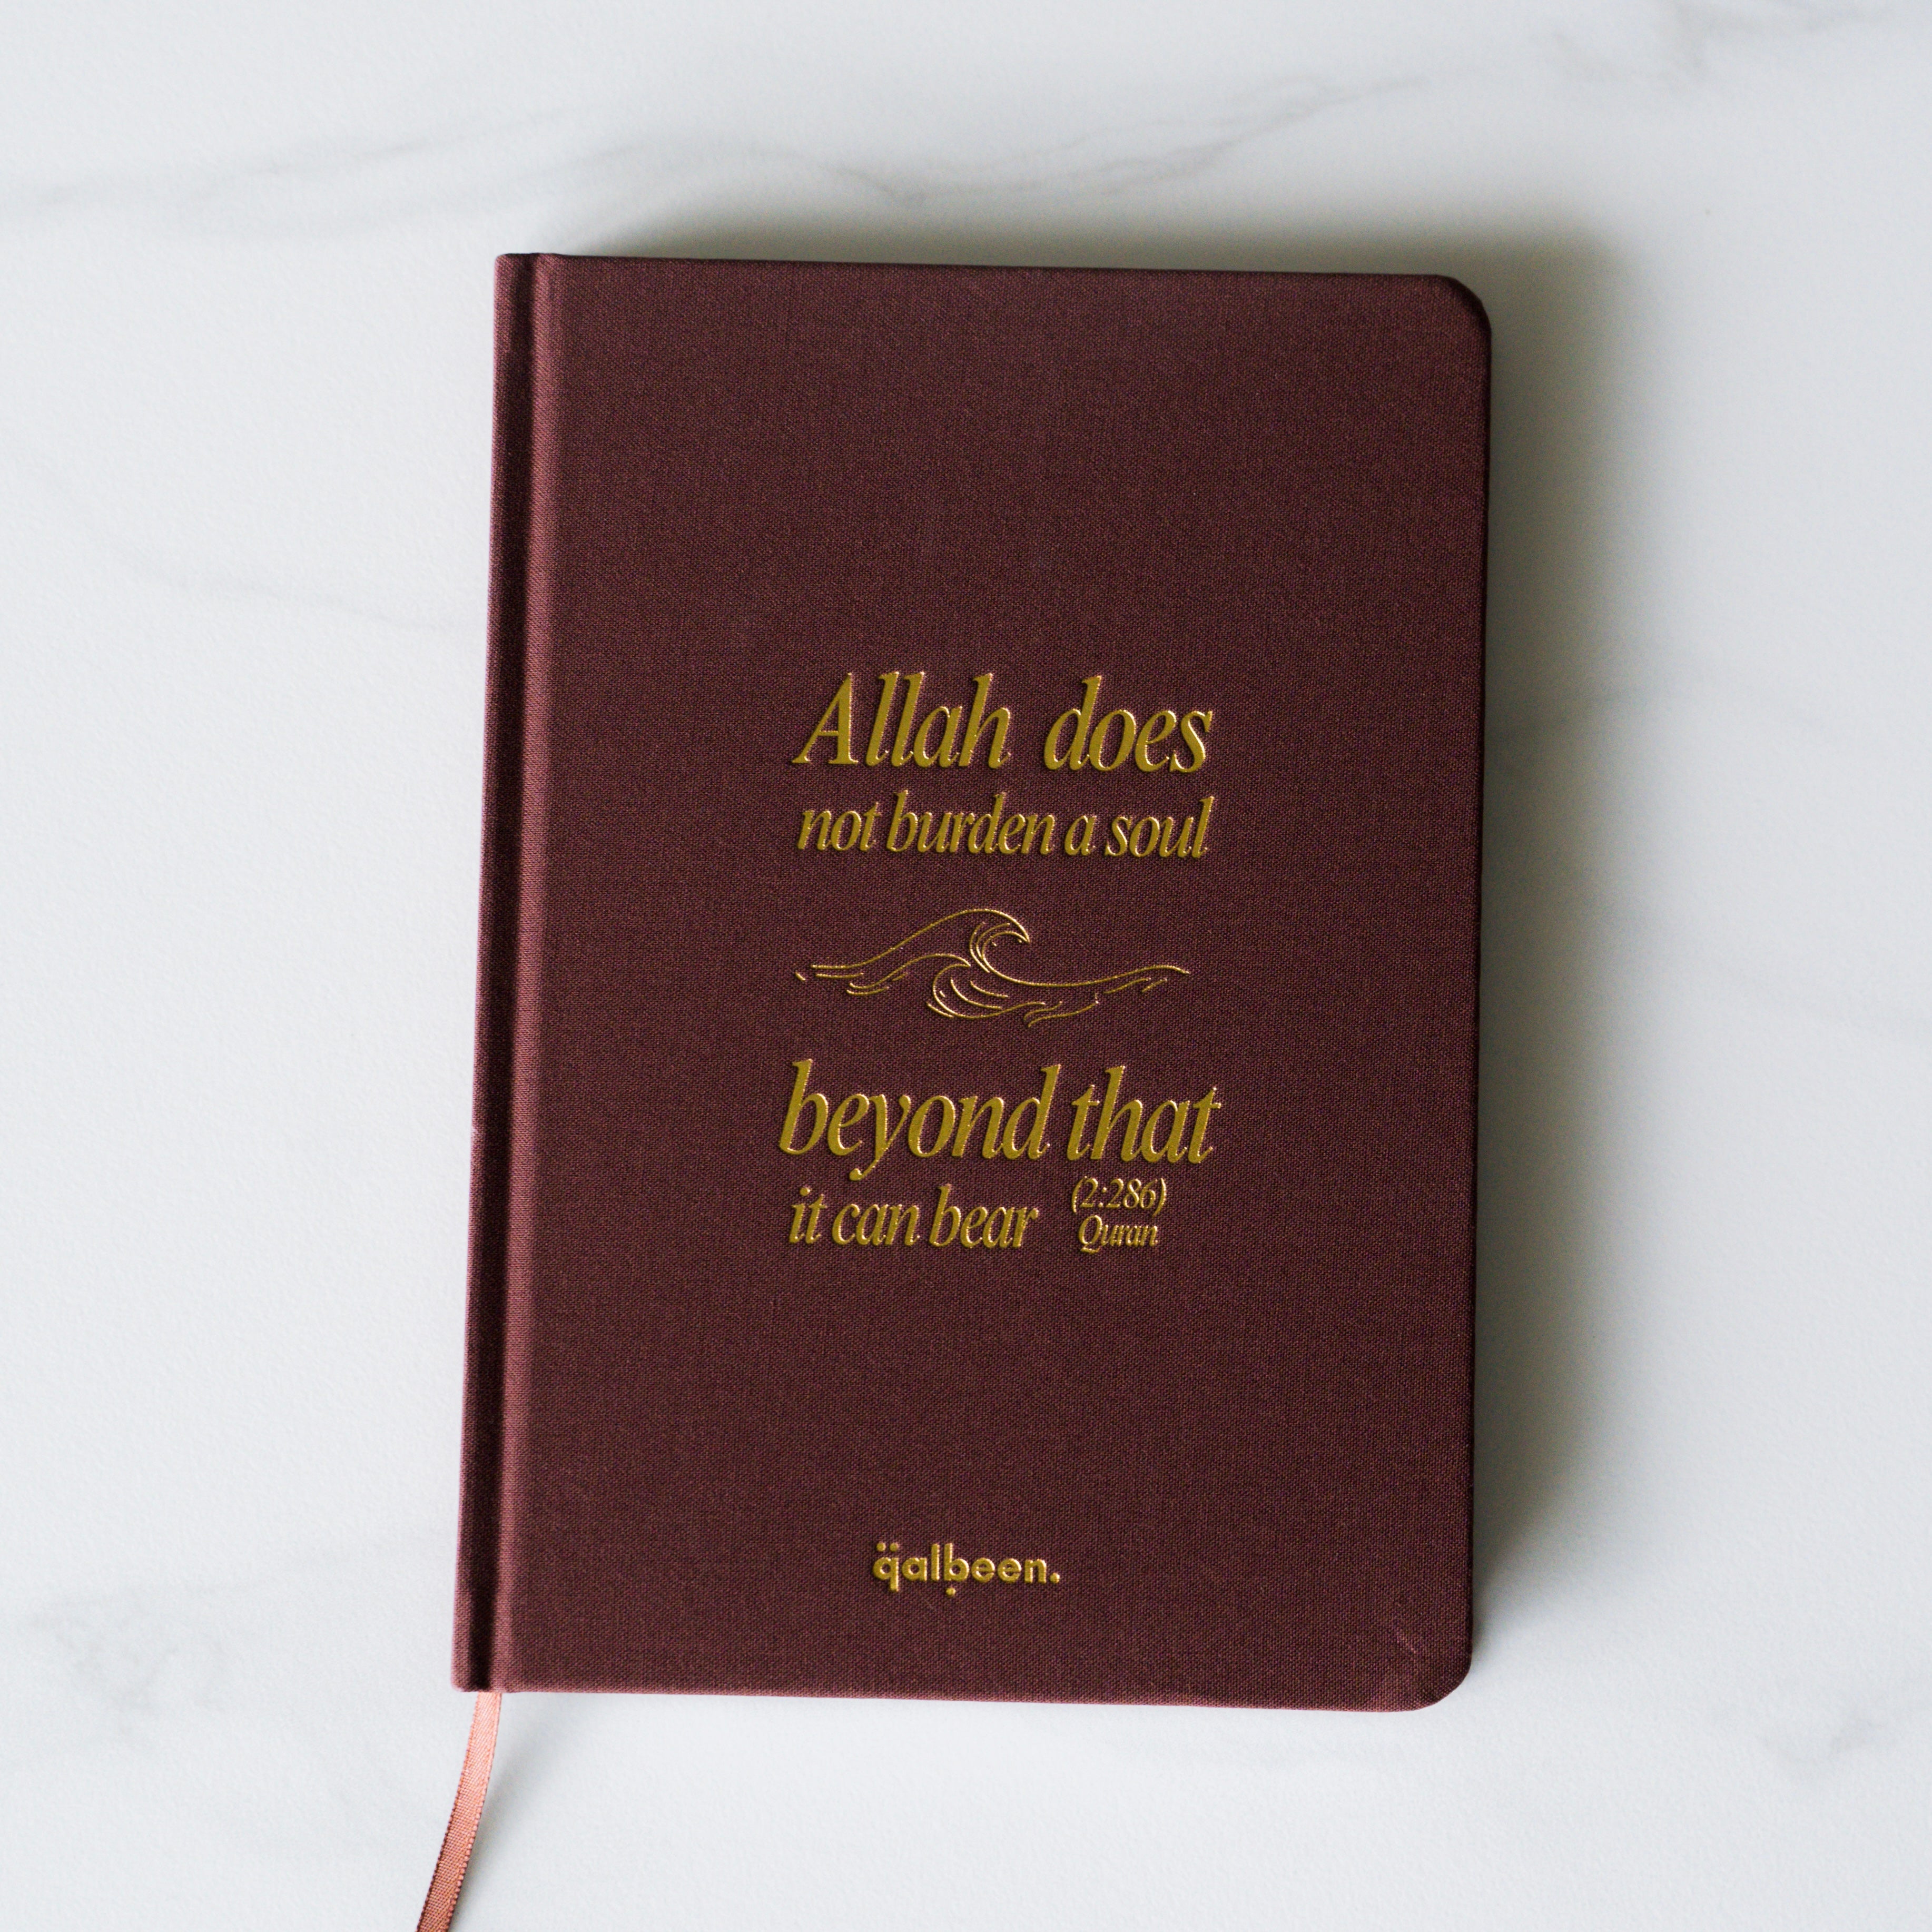 Allah does
not burden a soul
beyond that
it can bear (2:286)
Quran
q̈alḅeen.